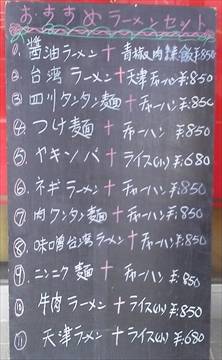 おすすめラーメンセット
①.醤油ラーメン+青椒肉絲飯¥850
②.台湾ラーメン+天津チャーハン¥850
③四川タンタン麺+チャーハン¥850
④つけ麺+チャーハン¥850
⑤.ヤキソバ+ライス(小)¥680
⑥.ネギラーメン+チャーハン¥850
⑦肉ワンタン麺+チャーハン¥850
⑧.味噌台湾ラーメン+チャーハン¥850
⑨.ニンニク麺+チャーハン¥850
⑩牛肉ラーメン+ライス(小)¥850
⑪天津ラーメン+ライス(小)¥680